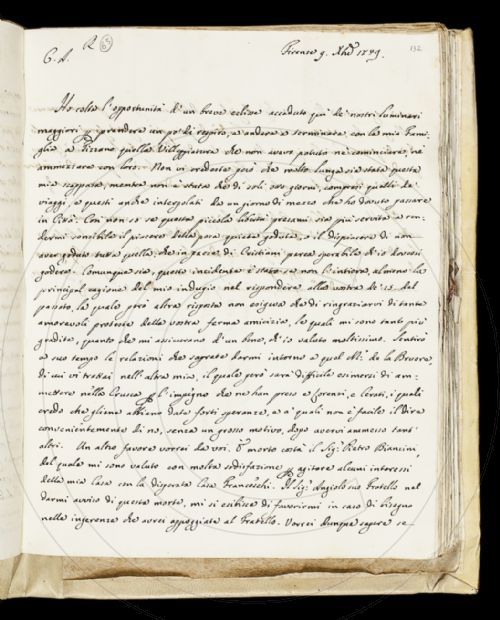 C. A. R 65 Firenze 9. Xbre 1749. 132
Ho colta l'opportunità d'un breve eclisse accaduto qui de' nostri luminari
maggiori p prendere un po' di respiro, e andare a terminare con la mia Fami-
glia a Pizzano quella Villeggiatura che non avevo potuto nè cominciare, nè
ammezzare con loro. Non vi credeste però che molto lunga sia stata questa
mia scappata, mentre non è stata che di soli otto giorni, compresi quelli de'
viaggi, e questi anche interpolati da un giorno di mezzo che ho dovuto passare
in Città. Con non so se questa piccola libertà presami sia più servita a ren-
dermi sensibile il piacere della poca quiete goduta, o il dispiacere di non
aver goduto tutta quella che in pace di Cristiani parea sperabile ch'io dovessi
godere. Comunque sia, questo incidente è stato se non l'intiera, almeno la
principal cagione del mio indugio nel rispondere alla vostra de' 15. del
passato, la quale però altra risposta non esigeva che di ringraziarvi di tante
amorevoli proteste della vostra ferma amicizia, le quali mi sono tanto più
gradite, quanto che mi assicurano d'un bene, ch'io valuto moltissimo. Sentirò
a suo tempo le relazioni che saprete darmi intorno a quel Mr: de la Bruere
di cui vi trattai nell'altra mia, il quale però sarà difficile esimersi di am-
mettere nella Crusca p l'impegno che ne han preso e Lorenzi, e Cerati, i quali
credo che gliene abbiano date forti speranze, e a' quali non è facile il dire
convenientemente di no, senza un grosso motivo, dopo avervi ammesso tant'
altri. Un altro favore vorrei da voi. È morto costà il Sig: Pietro Biancini,
del quale mi sono valuto con molta sodisfazione p agitare alcuni interessi
della mia Casa con la disperata Casa Franceschi. Il Sig: Angiolo suo Fratello nel
darmi avviso di questa morte, mi si esibisce di favorirmi in caso di bisogno
nelle ingerenze che avea appoggiate al Fratello. Vorrei dunque sapere se-